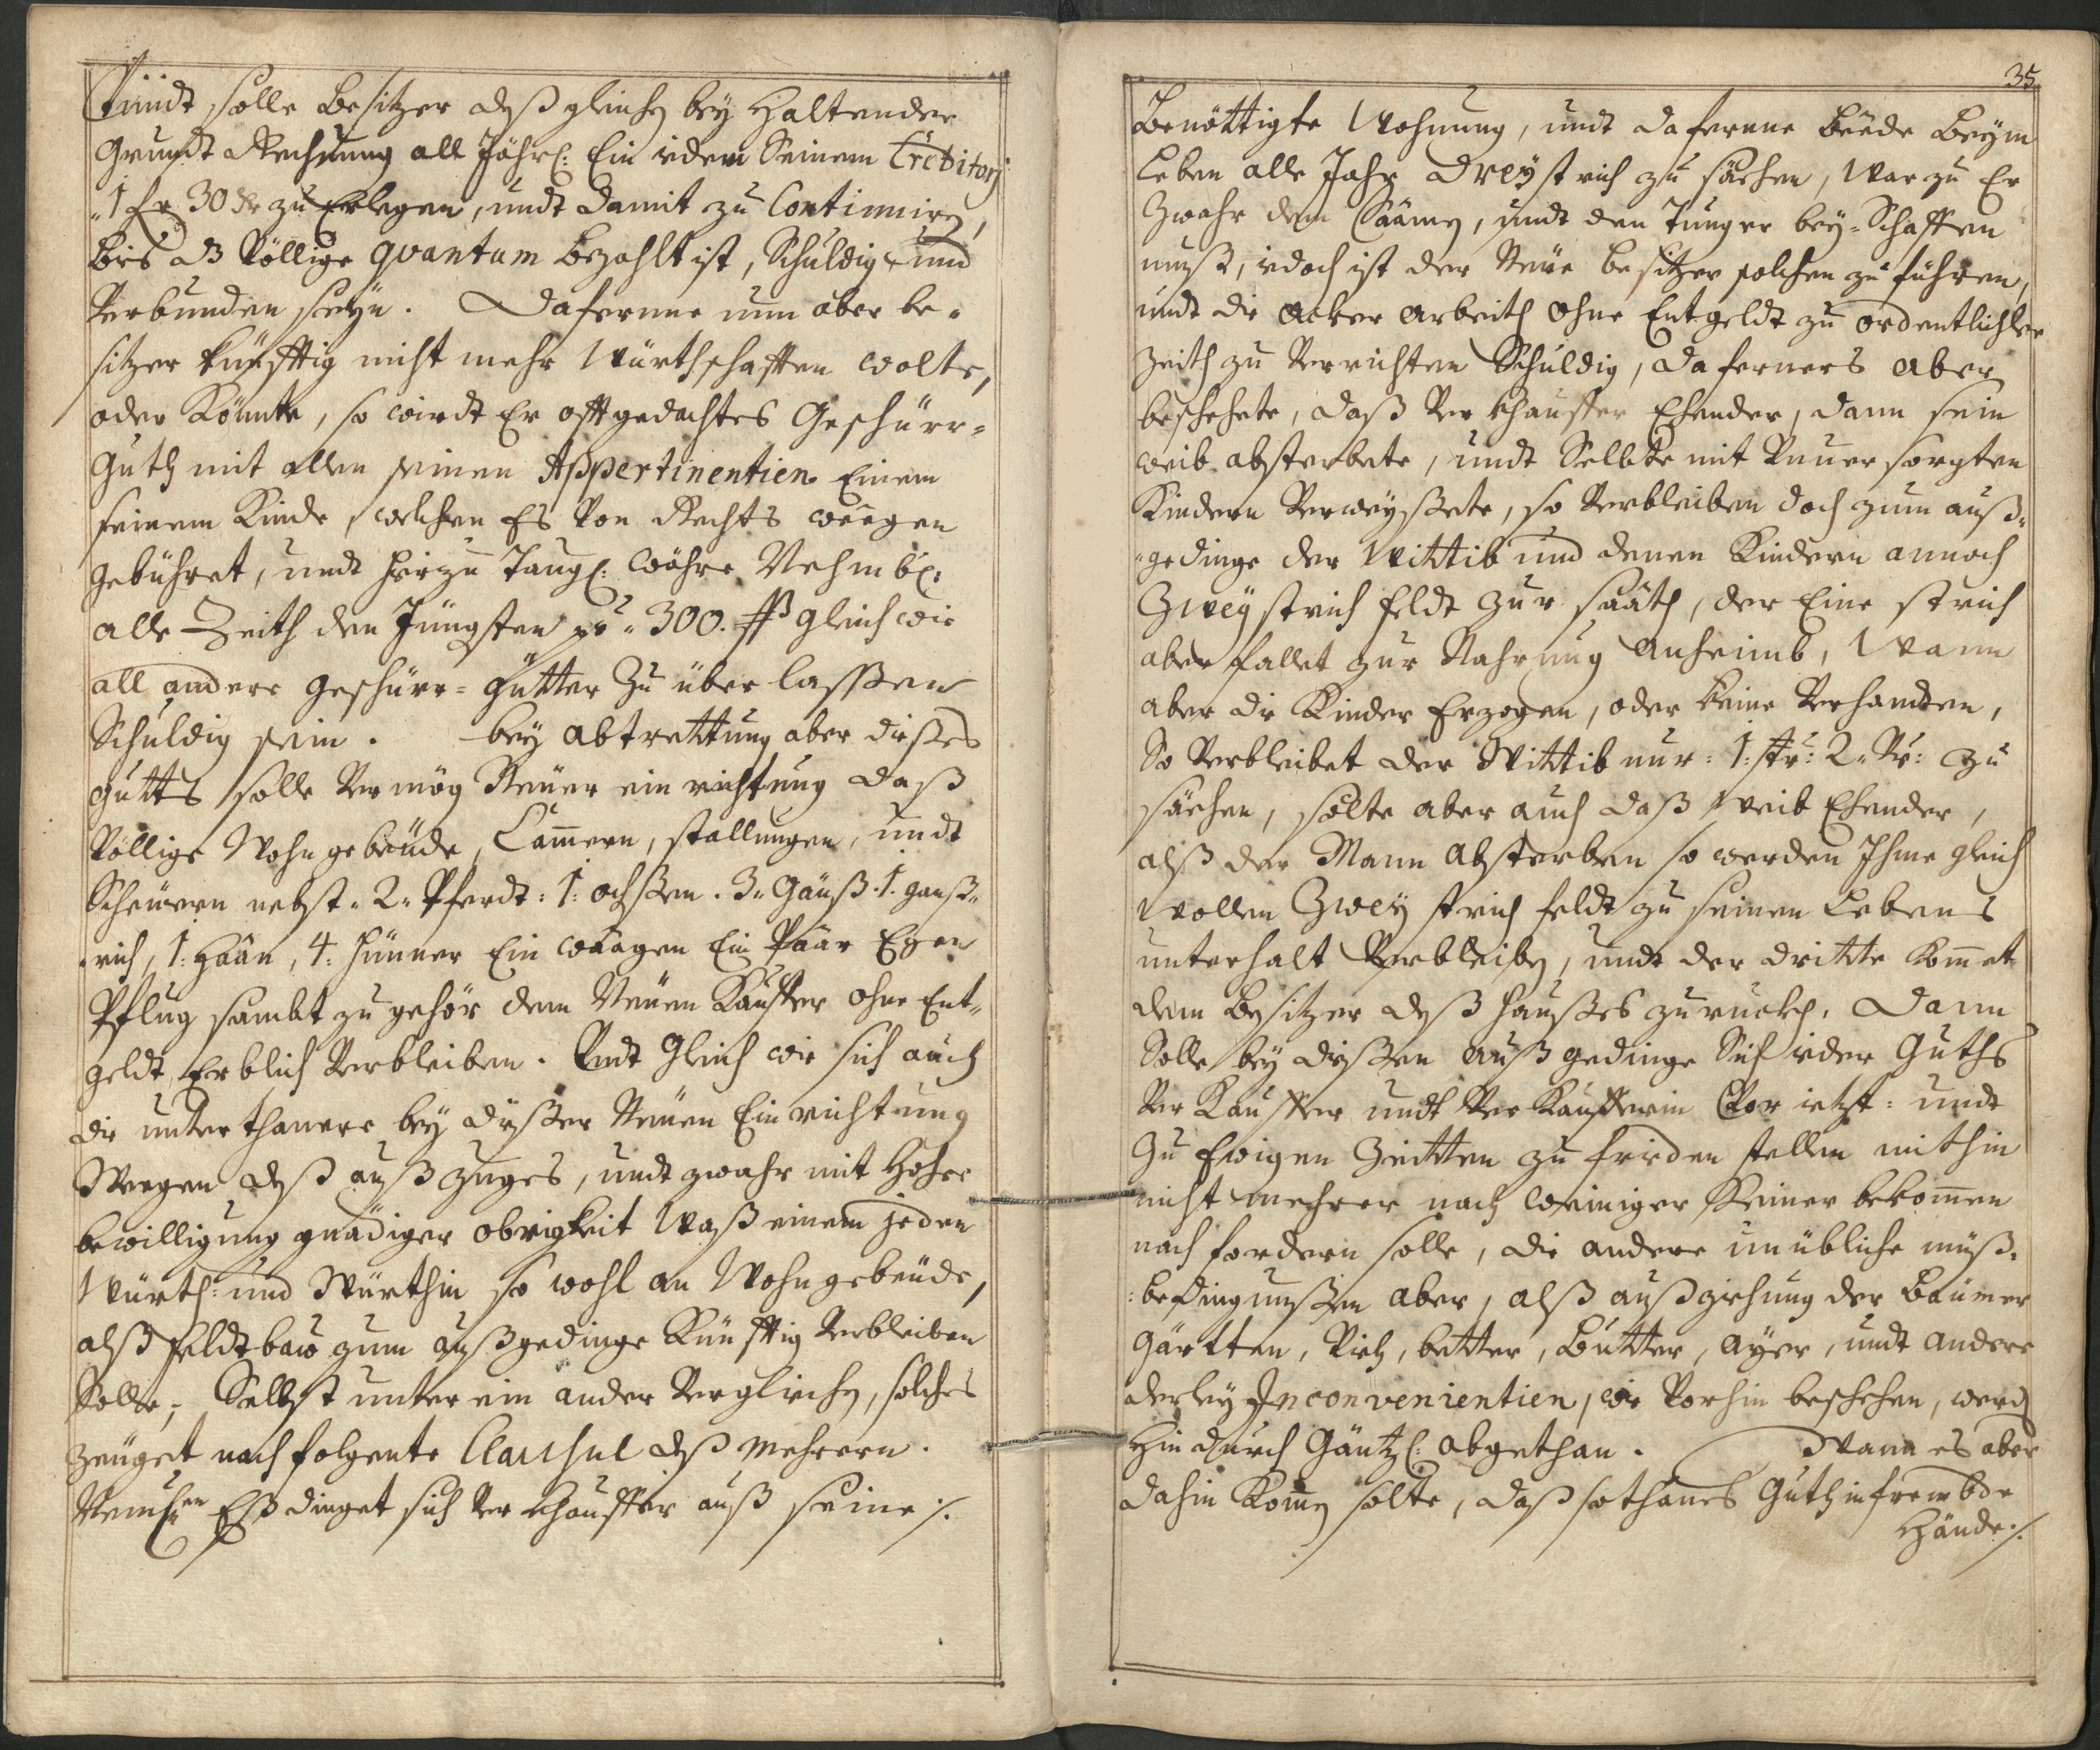 Undt solle Besitzer deßgleichen bey Haltender
Grundt Rechnung all Jährl: Ein ieden Seinem Creditorj
1 fr 30 xr zu Erlegen, undt damit zu Continuiren,
bis dz Völlige quantum bezahlt ist, Schuldig und
Verbunden seyn. Daferne nun aber be-
sitzer künfftig nicht mehr Würthschafften wolte,
oder Könnte, so wirdt Er offtgedachtes Geschürr-
Guth mit allen seinen Appertinentien Einem
seinem Kinde, welchen Es Von Rechts weegen
gebühret, undt hierzu Taugl: währe Nehmbl:
alle Zeith den Jüngsten pr 300. fß gleich wie
all andere Geschürr-Gütter Zu überlasßen
Schuldig sein. bey abtrettung aber dießes
gutts solle Vermög Neuer einrichtung daß
Völlige Wohngebeüde, Cammern, stallungen, undt
Scheüern nebst 2 Pferdt: 1: ochßen. 3 Gänß. 1. ganß-
rich, 1: Haan, 4: hünner Ein waagen Ein Paar Egen
Pflug sambt zugehör dem Neüen Kauffer ohne Ent-
geldt Erblich Verbleiben. Undt Gleich wie sich auch
die unterthanere bey dißer Neüen Einrichtung
Wegen deß außzuges, undt zwahr mit Hoher
bewilligung gnädiger obrigkeit Waß einem jeden
Würth- und Würthin so wohl an Wohngebeüde,
alß Feldtbaw zum außgedinge Künfftig Verbleiben
Solle, Selbst unter ein ander Verglichen, solches
zeüget nachfolgente Clausul deß mehrern.
Nembl:en Eß dinget sich Verkhauffer auß seine ./.
35
Benöttigte Wohnung, undt daferne beede beym
Leben alle Jahr Drey strich zu säehen, Warzu Er
Zwahr den Saamen, undt den Tunger bey-Schaffen
muß, iedoch ist der Neüe besitzer solchen zu führen,
undt die acker arbeith ohne Entgeldt zu ordentlicher
Zeith zu Verrichten Schuldig, daferners aber
beschehete, daß Verkhauffer Ehender, dann sein
weib absterbete, undt Selbte mit Unversorgten
Kindern Verweyßete, so Verbleiben doch zum auß-
gedinge der Wittib und denen Kindern annoch
Zwey strich feldt zur saath, der Eine strich
aber fallet zur Nahrung anheimb, Wann
aber die Kinder Erzogen, oder keine Verhandten,
So Verbleibet der Wittib nur: 1: str: 2 Vr: zu
säehen, solte aber auch daß Weib Ehender,
alß der Mann absterben so werden Ihme gleich
Wollen Zwey strich feldt zu seinen Lebens
unterhalt Verbleiben, undt der dritte Kommet
dem besitzer deß haußes zurückh. Dann
Solle bey dißen außgedinge Sich ieder Guths
Verkauffer undt Verkaufferin Vor ietzt- undt
zu Ewigen Zeitten zu frieden stellen mithin
nicht mehrer noch weiniger Keiner bekommen
noch fordern solle, die andere unübliche müß-
bedingnußen aber, alß außziehung der baümer
Gärtten, Vieh, better, Butter, ayer, undt andere
derley Inconvenientien, wie Vorhin beschehen, werden
Hindurch Gäntzl: abgethan. Wann es aber
dahin Kommen solte, daß sothanes Guth in frembde
Hände ./.